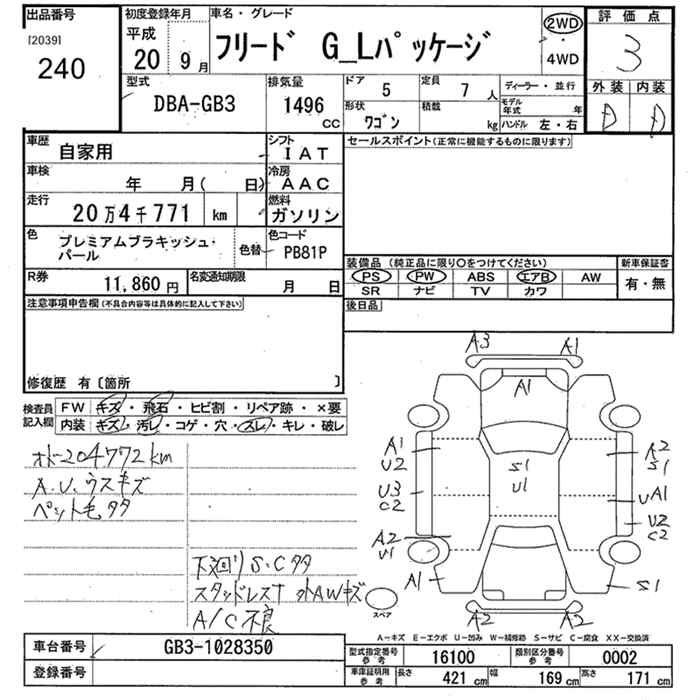 出品番号 初度登録年月 車名・グレード 評価点
[2039] 平成 20年 9月 フリード G_Lパッケージ 2WD ・ 4WD 3
240
型式 排気量 ドア 5 定員 7人 ディーラー・並行 外装 内装
DBA-GB3 1496cc 形状 ワゴン 積載 kg モデル年式 年 D D
ハンドル 左・右
車歴 自家用 シフト IAT セールスポイント(正常に機能するものに限ります)
車検 年 月( 日) 冷房 AAC
走行 20万4千771 km 燃料 ガソリン
色 プレミアムブラキッシュ・パール 色替 色コード PB81P
装備品 (純正品に限り〇をつけてください) 新車保証書
PS PW ABS エアB AW 有・無
SR ナビ TV カワ
R券 11,860円 名変通知期限 月 日
後日品
注意事項申告欄(不具合内容等は具体的に記入して下さい)
修復歴 有〔箇所 〕
検査員記入欄 FW キズ・飛石・ヒビ割・リペア跡・×要
内装 キズ・汚レ・コゲ・穴・スレ・キレ・破レ
A3 A1
A1
A1 U2 S1 U1 A2 S1
U3 C2 U A1
U2 C2
A2 U1
A1 S1
A2 A2
スペア
ホー204772km
A.U.ウスキズ
ペット毛タタ
下廻りS・Cタタ
スタッドレス† 外AWキズ
A/C不良
A-キズ E-エクボ U-凹み W-補修跡 S-サビ C-腐食 XX-交換済
車台番号 GB3-1028350
登録番号
型式指定番号 参考 16100 類別区分番号 参考 0002
車庫証明用 参考 長さ 421cm 幅 169cm 高さ 171cm